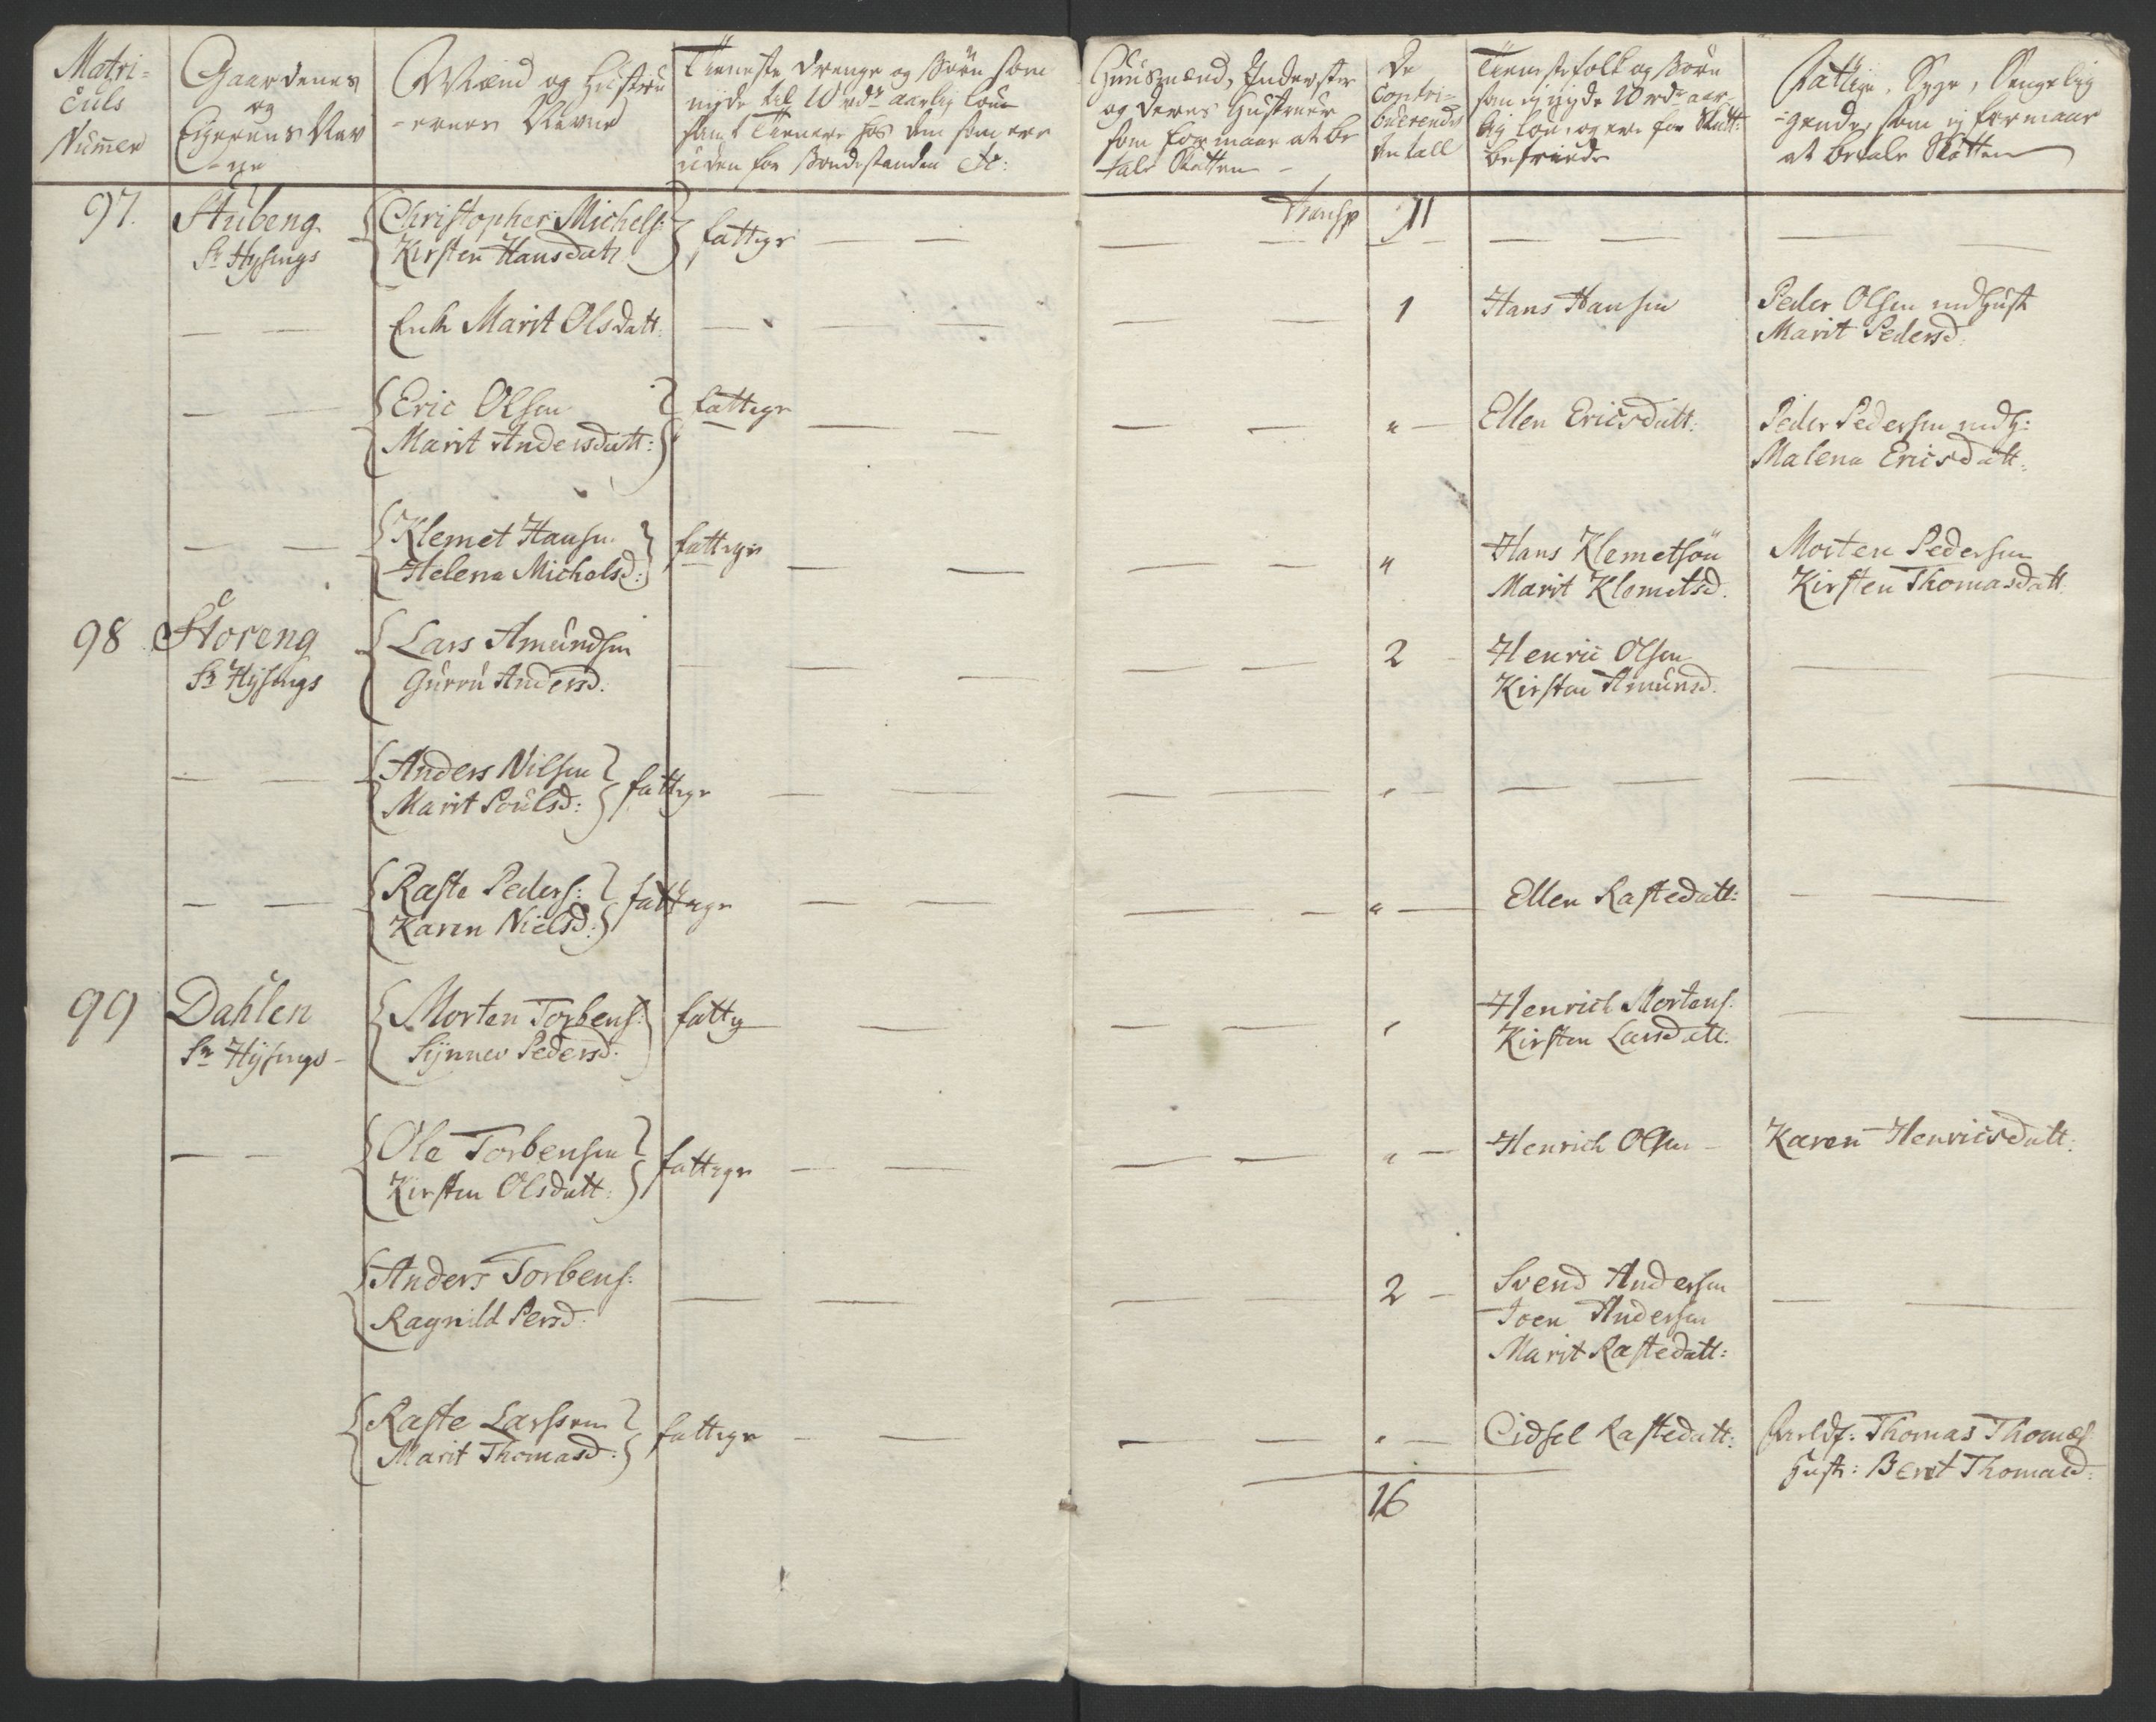 Matri=
culs
Nummer
Gaardenes
og
Eyerens Nav
-ne
Mænd og Hustru
-ernes Navne
Tieneste Drenge og Børn som
nyde til 10 rdr aarlig Løn
samt Tienere hos dem som ere
uden for Bondestanden etc:
Huusmænd, Inderster
og deres Hustruer
som formaar at be
tale Skatten -
De
Contri-
buerendes
Antall
Tienestefolk og Børn
som ej nyde 10 rdr aar-
lig løn, og ere for Skatt:
befriede
Fattige, Syge, Sengelig
-gende, som ej formaar
at betale Skatten
97. Stubeng { Christopher Michels: } fattige — — — — Transp 11 — — — —
Sr Hysings Kirsten Hansdatt
— — Enk Marit Olsdatt. — — — — — 1 Hans Hansen Peder Olsen med Hust
Marit Pedersd.
— — { Eric Olsen } fattige — — — — " — Ellen Ericsdatt: Peder Pedersen med H:
Marit Andersdatt: Malena Ericsdatt.
— — { Klemet Hansen } fattige — — — — " Hans Klemetsön Morten Pedersen
Helena Michelsd: Marit Klemetsd. Kirsten Thomasdatt
98 Storeng { Lars Amundsen — — — — — 2 Henric Olsen — —
Sr Hysings Gurru Andersd. Kirsten Amunsd.
— — { Anders Nilsen } fattige — — — — " — — — — —
Marit Poulsd:
— — { Raste Peders: } fattige — — — — " — Ellen Rastedatt: — —
Karen Nielsd:
99 Dahlen { Morten Torbens: } fattig — — — " Henrich Mortens: — —
Sr Hysings - Synnev Pedersd: Kirsten Larsdatt:
— — { Ole Torbensen } fattige — — — — " — Henrich Olsen — Karen Henricsdatt:
Kirsten Olsdatt:
{ Anders Torbens: — — — — — 2 — Svend Andersen — —
Ragnild Persd: Joen Andersen
Marit Rastedatt:
{ Raste Larssen } fattige — — — — " — Cidsel Rastedatt: Thomas Thomes
Marit Thomasd: Hust: Berit Thomasd:
16